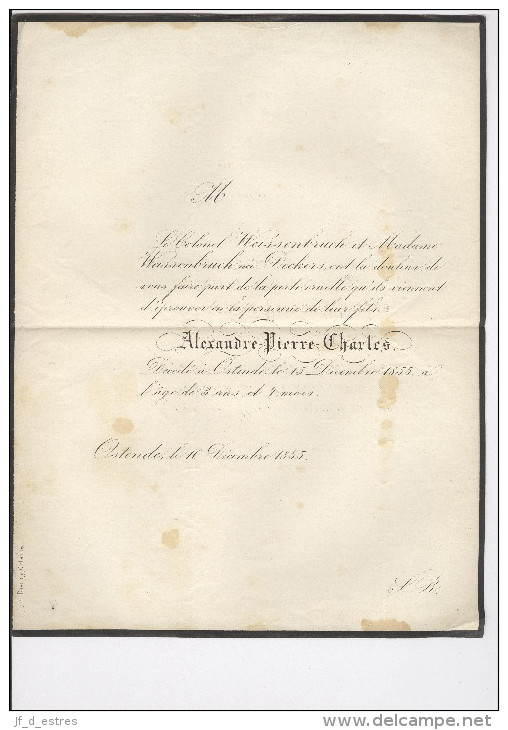 M
Le Colonel Weissenbruch et Madame
Weissenbruch née Deckers, ont la douleur de
vous faire part de la perte cruelle qu'ils viennent
d'éprouver en la personne de leur fils
Alexandre-Pierre-Charles
Décédé à Ostende, le 15 Décembre 1855, à
l'âge de 3 ans et 4 mois.
Ostende, le 16 Décembre 1855.
jf_d_estres
www.delcampe.net